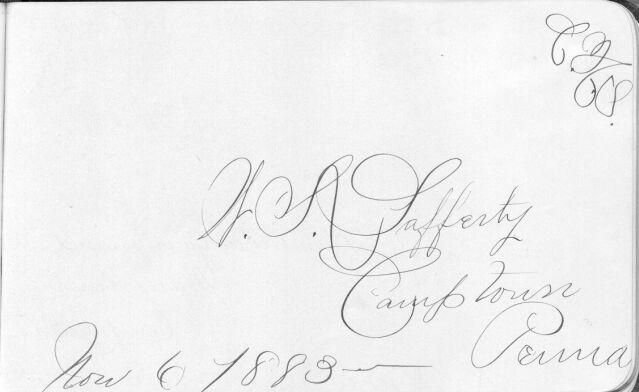 W. S. Lafferty
Camptown
Penna
Nov 6 1883